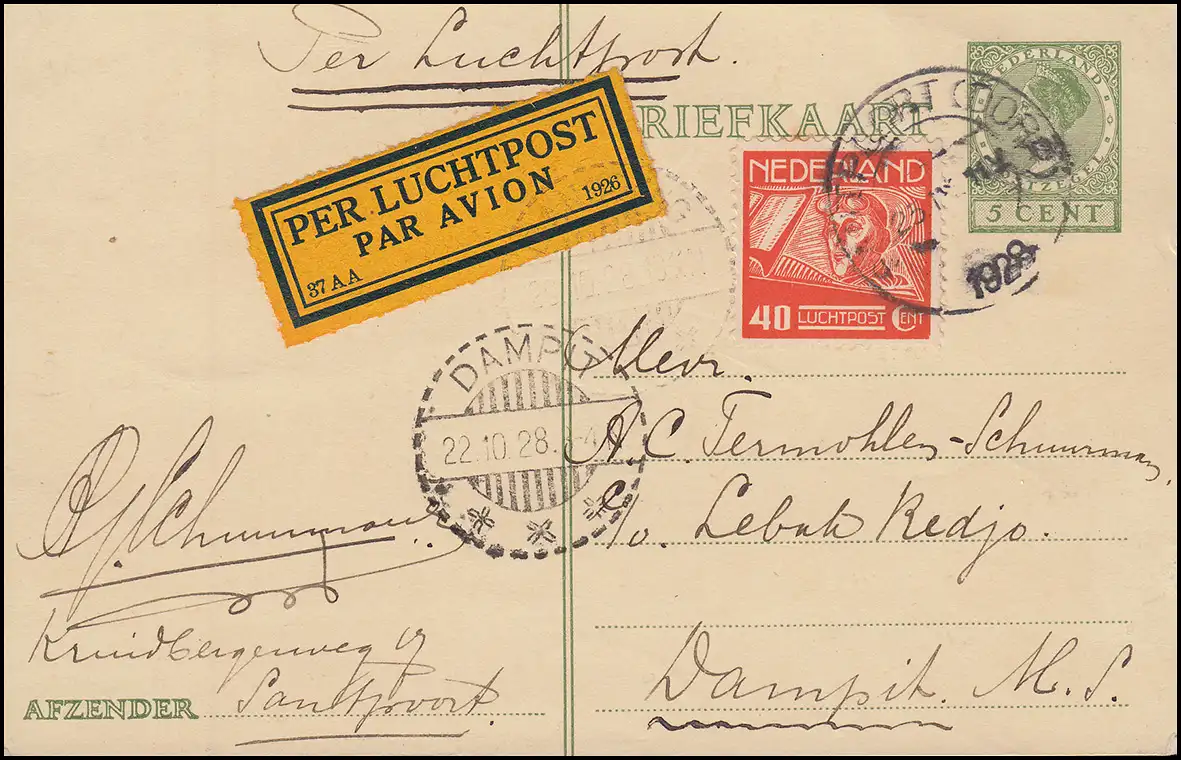 Per Luchtpost.
BRIEFKAART
NEDERLAND
5 CENT
PER LUCHTPOST
PAR AVION
37 AA 1926
NEDERLAND
40 LUCHTPOST CENT
1928
DAMPG
22.10.28.
Mevr.
A. C. Termohlen-Schuurman,
c/o. Lebak Redjo.
Dampit. M. S.
Schuurman
19
Santpoort.
AFZENDER